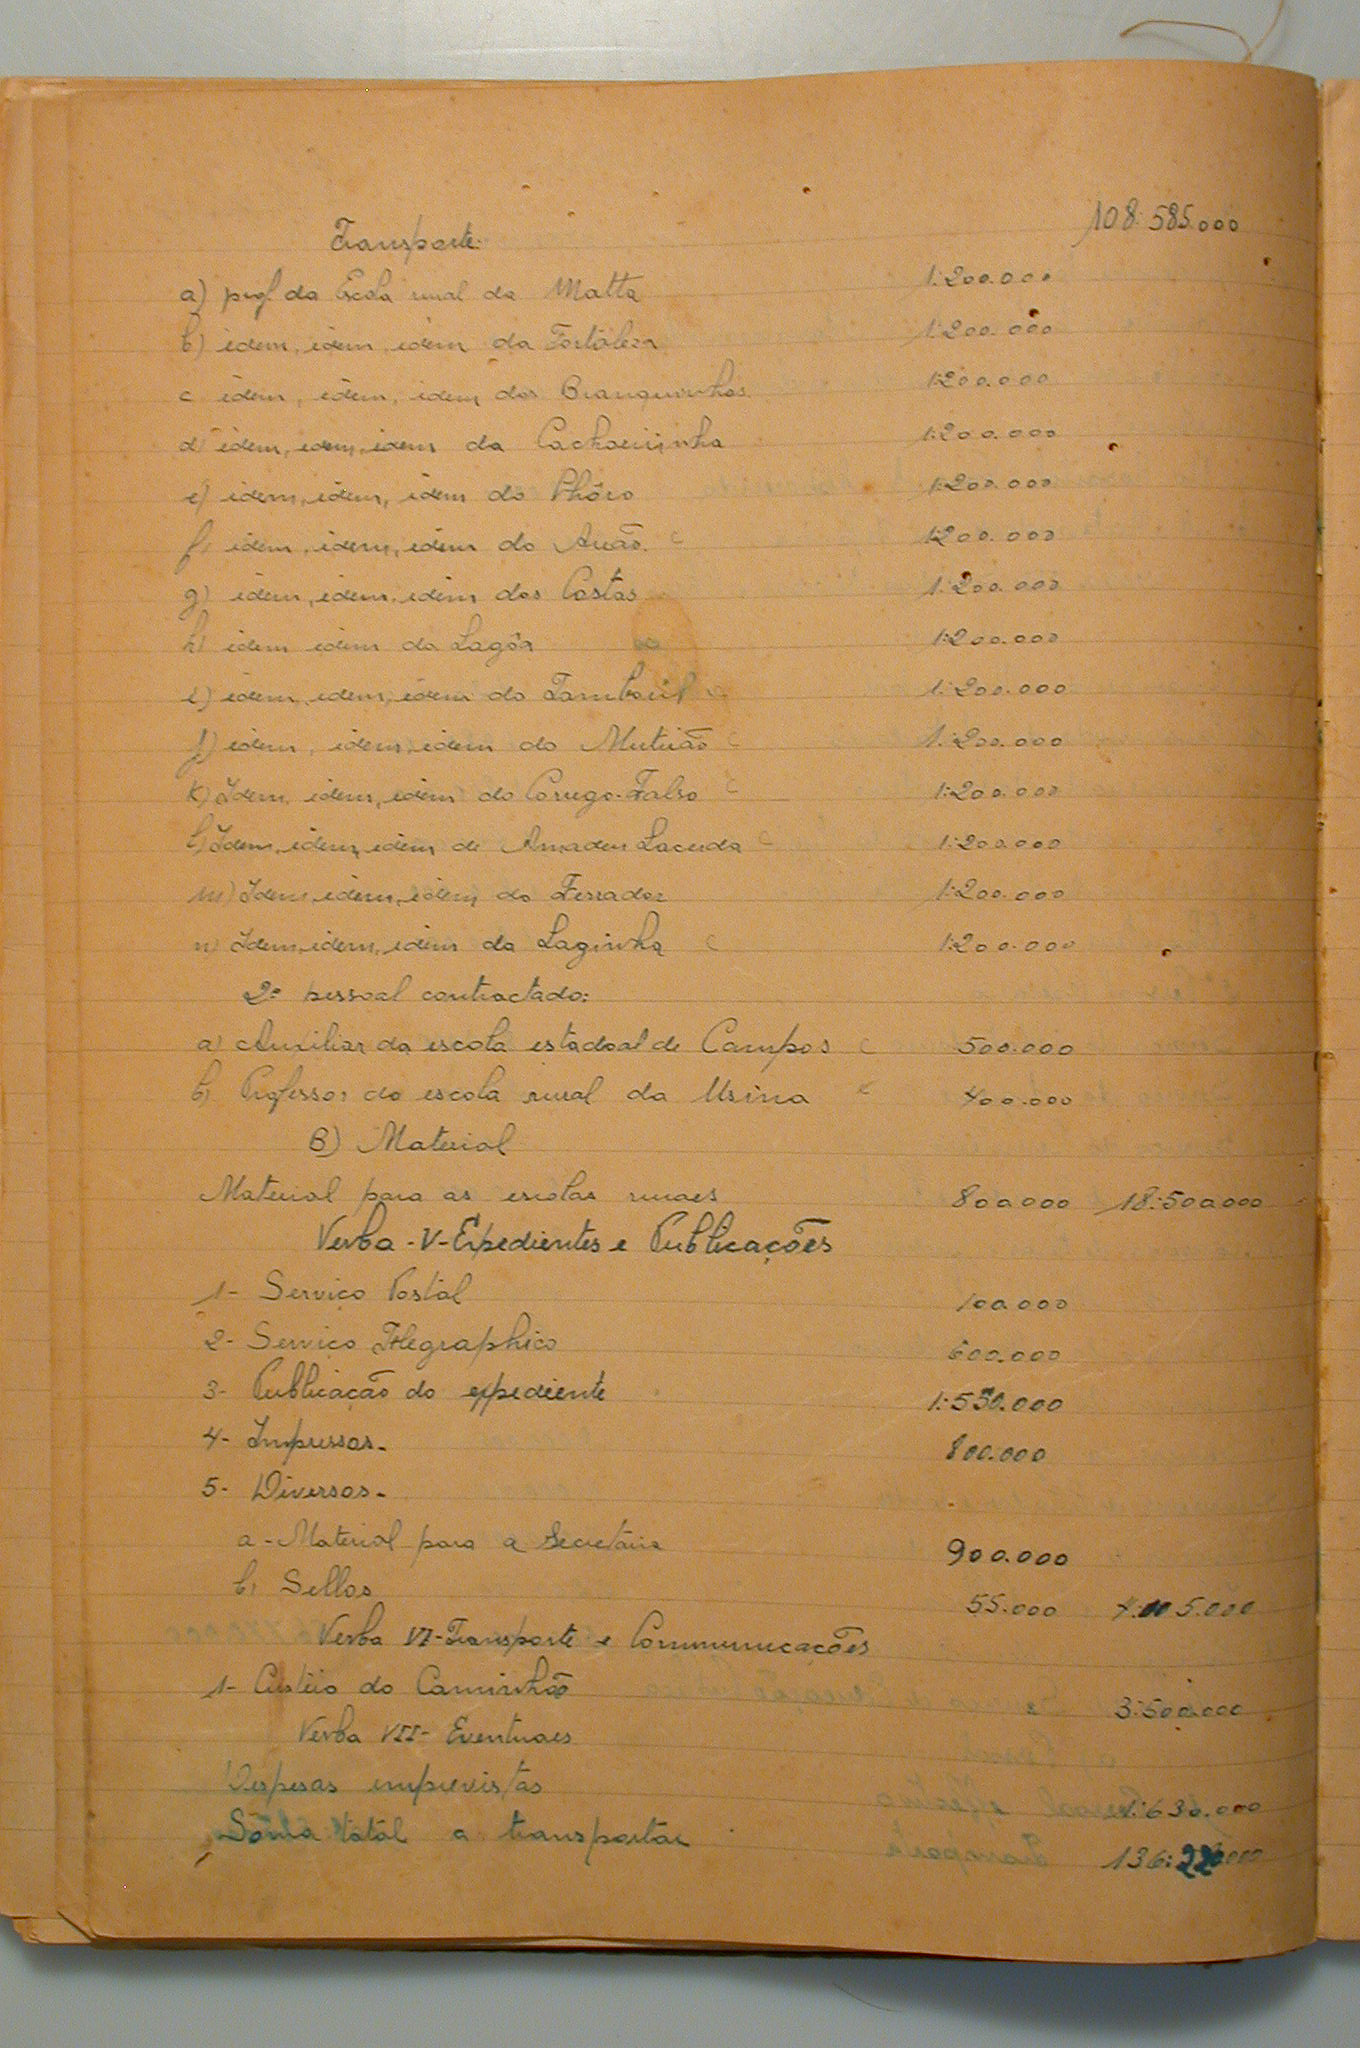 Transporte. 108:585.000
a) prof da Escola rural da Matta 1:200.000
b) idem, idem, idem da Fortaleza 1:200.000
c idem, idem, idem dos Branquinhos. 1:200.000
d) idem, idem, idem da Cachoeirinha 1:200.000
e) idem, idem, idem do 1:200.000
f) idem, idem, idem do 1:200.000
g) idem, idem, idem dos Costas 1:200.000
h) idem idem da Lagôa 1:200.000
i) idem, idem, idem do Tamboril 1:200.000
j) idem, idem, idem do Mutuão 1:200.000
k) Idem, idem, idem do Corrego-Falso 1:200.000
l) Idem, idem, idem de Amadeu Lacerda 1:200.000
m) Idem, idem, idem do Ferrador 1:200.000
n) Idem, idem, idem da Laginha 1:200.000
2º pessoal contractado:
a) Auxiliar da escola estadoal de Campos 500.000
b) Professor da escola rural da Usina 400.000
B) Material
Material para as escolas ruraes 800.000 18:500.000
Verba - V - Expedientes e Publicações
1- Serviço Postal 100.000
2- Serviço Telegraphico 600.000
3- Publicação do expediente 1:550.000
4- Impressos- 800.000
5- Diversos-
a - Material para a Secretaria 900.000
b) Sellos 55.000 4:005.000
Verba VI - Transporte e Communicações
1- Custeio do Caminhão 3:500.000
Verba VII - Eventuaes
Despesas imprevistas 1:630.000
Sôma total a transportar 136:220.000